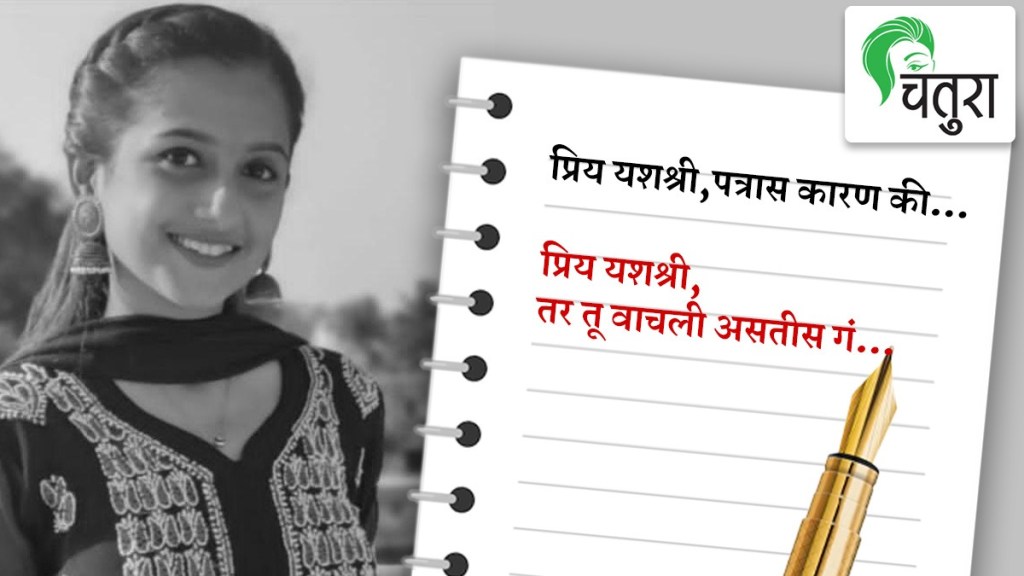 चतुरा
प्रिय यशश्री,पत्रास कारण की...
प्रिय यशश्री,
तर तू वाचली असतीस गं...